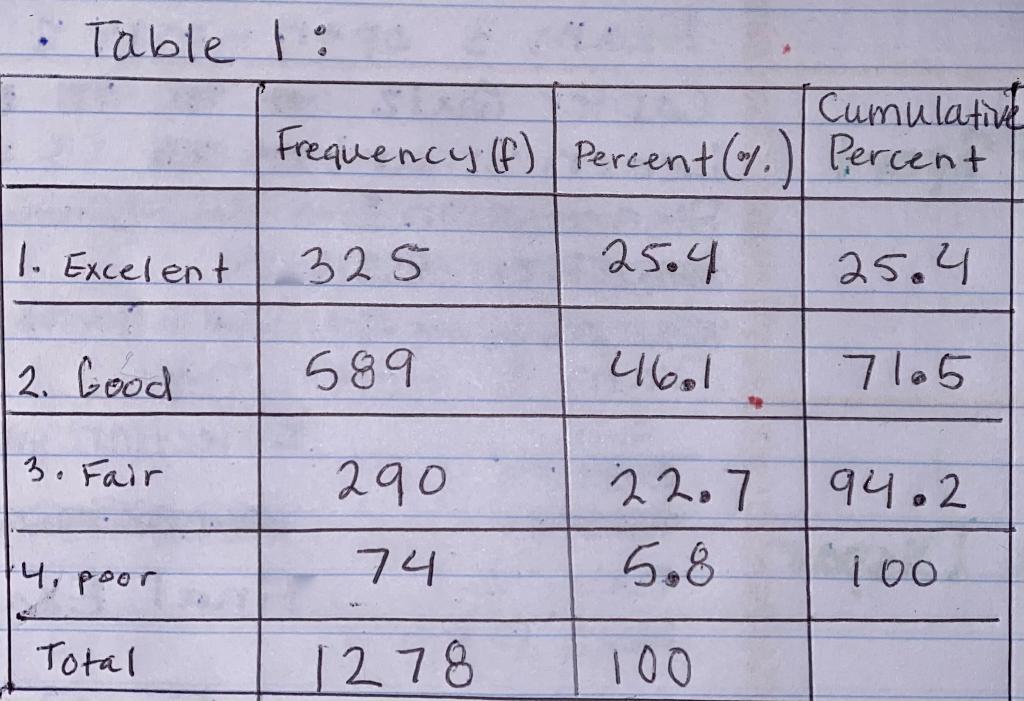 • Table 1:
Frequency (f) Percent (%) Cumulative Percent
1. Excelent 325 25.4 25.4
2. Good 589 46.1 71.5
3. Fair 290 22.7 94.2
4. poor 74 5.8 100
Total 1278 100